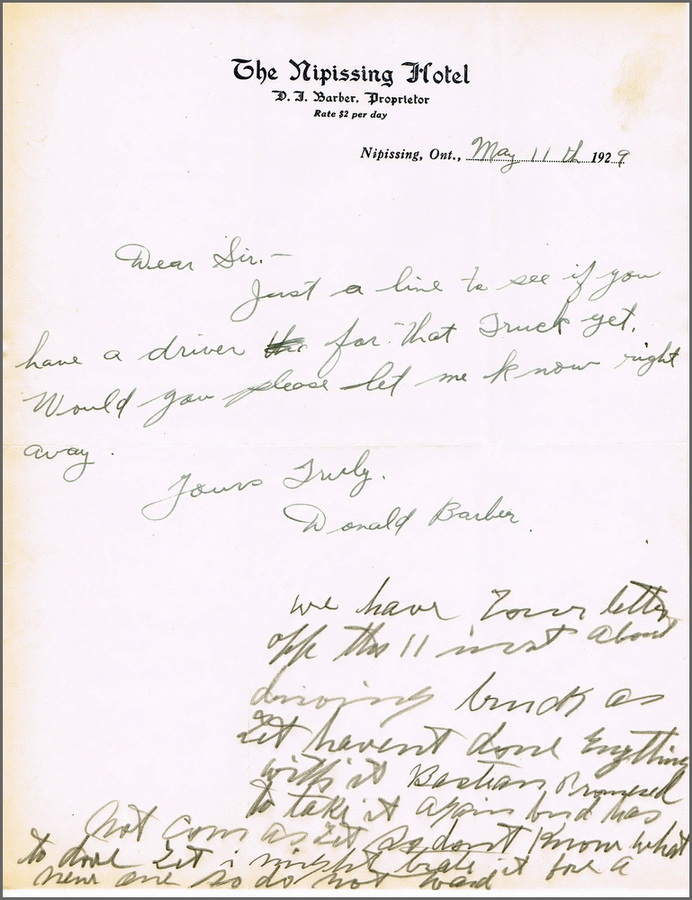 The Nipissing Hotel
D. J. Barber, Proprietor
Rate $2 per day
Nipissing, Ont., May 11 th 1929
Dear Sir.—
Just a line to see if you
have a driver for that Truck yet.
Would you please let me know right
away.
Yours Truly.
Donald Barber.
we have Your letter
off the 11 inst about
driving truck as
Zet havent done Enything
with it Bastian Promesed
to take it again but has
Not com as Zet So dont Know what
to doe Zet i might trade it for a
new one so do not